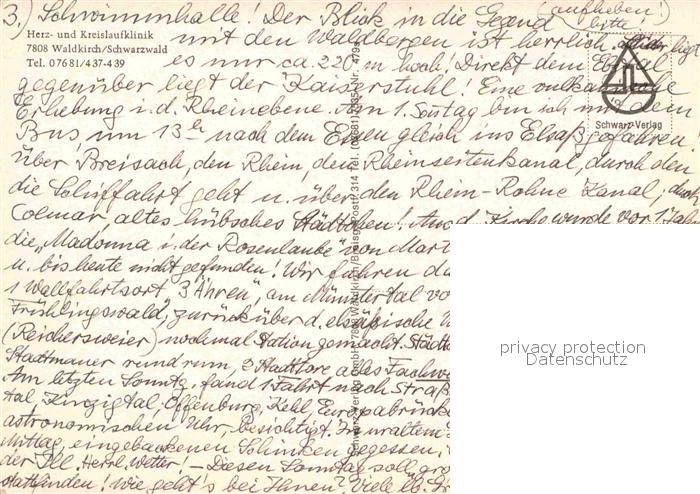 3.) Schwimmhalle! Der Blick in die Gegend (aufheben! bitte!
Herz- und Kreislaufklinik
7808 Waldkirch/Schwarzwald
Tel. 07681/437-439
mit den Waldbergen ist herrlich, liegt
es nur ca. 220 m hoch! Direkt dem
gegenüber liegt der Kaiserstuhl! Eine vulkanische
Erhebung i. d. Rheinebene. Am 1. Sontag bin ich mit dem
Bus, um 13 h nach dem Essen gleich ins Elsaß gefahren!
Schwarz-Verlag
über Breisach, den Rhein, den Rheinseitenkanal, durch den
die Schiffahrt geht u. über den Rhein-Rohne Kanal, durch
Colmar altes hübsches Städtchen! Aus d. Kirche wurde vor 1 Jahr
die „Madonna i. der Rosenlaube" von Mart
u. bis heute nicht gefunden! Wir fuhren
1 Wallfahrtsort „3 Ähren", am Münstertal vo
Frühlingswald, zurück über d. elsäßische
(Reichersweier) nochmal Station gemacht. Städt
Stadtmauer rund rum, 2 Stadttore alles Fachw
Am letzten Sonntg. fand 1 Fahrt nach Straß
tal, Kinzigtal, Offenburg, Kehl, Europabrücke
astronomischen Uhr, besichtigt. In uraltem
Mittag, eingebackenen Schinken gegessen,
der Ill. Herrl. Wetter! - Diesen Sonntag soll gro
stattfinden! Wie geht's bei Ihnen? Viele lb. Gr
privacy protection
Datenschutz